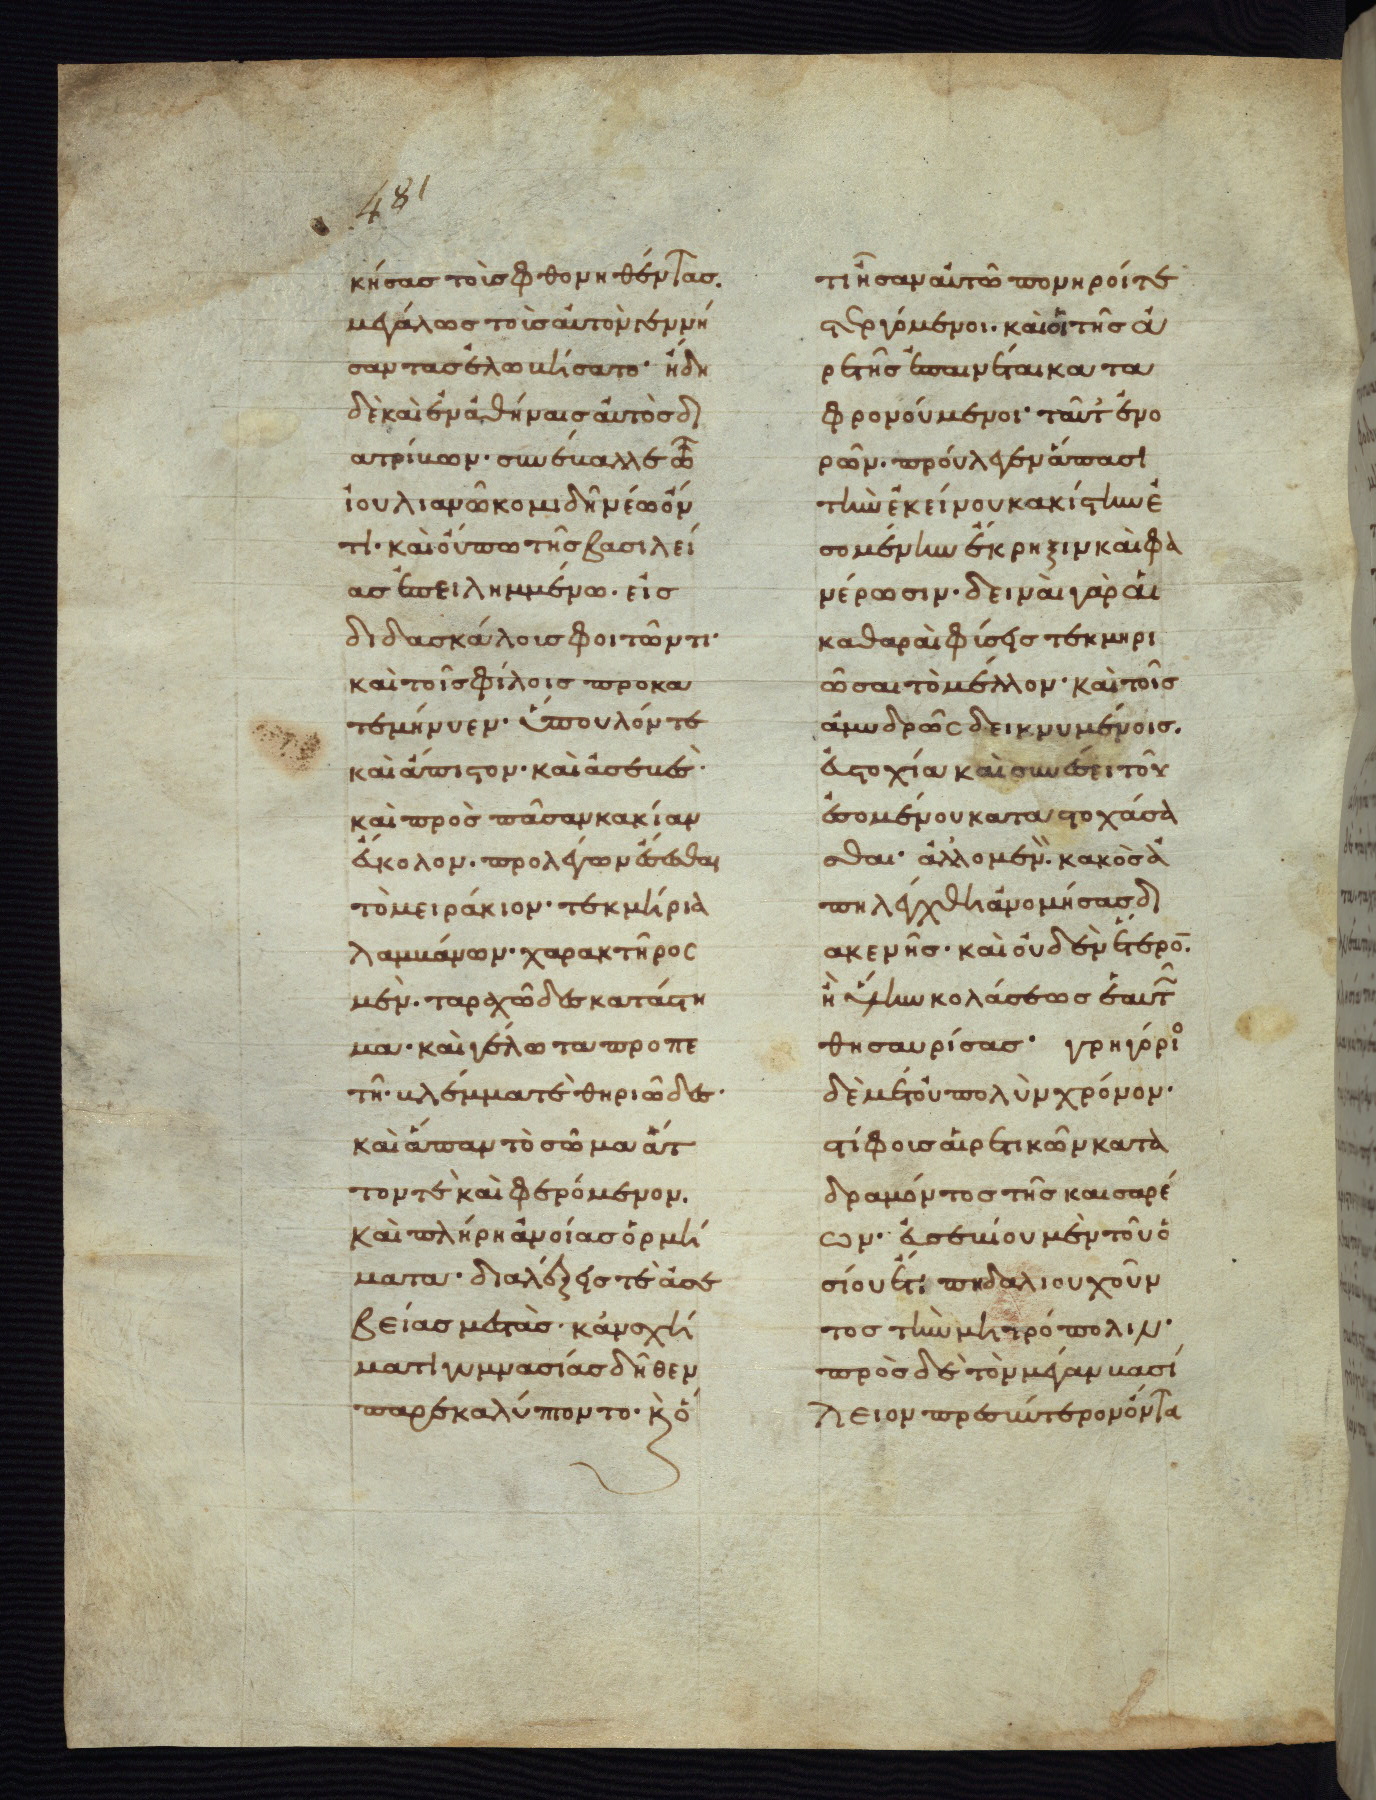 481
κήσας τοῖς φθονηθέντας.
μεγάλως τοῖς αὐτὸν γεννή
σαντας ἐλωβήσατο· ἤδη
δὲ καὶ ἐν ἀθήναις αὐτὸς δι
ατρίβων· συνέβαλλε τῶ
ἰουλιανῶ κομιδῆ νέω ὄν
τι· καὶ οὔπω τῆς βασιλεί
ας ἐπειλημμένω. εἰς
διδασκάλοις φοιτῶντι·
καὶ τοῖς φίλοις προκα
τεμήνυεν· ὕπουλόν τε
καὶ ἄπιστον· καὶ ἀσεβὲς·
καὶ πρὸς πᾶσαν κακίαν
εὔκολον. προλέγων ἔσεσθαι
τὸ μειράκιον· τεκμήρια
λαμβάνων· χαρακτῆρος
μὲν. ταραχῶδες κατάστη
μα· καὶ γέλωτα προπε
τῆ· βλέμμα τὲ θηριῶδες·
καὶ ἅπαν τὸ σῶμα ἄτ
τον τὲ καὶ φερόμενον.
καὶ πλήρη ἀνοίας ὁρμή
ματα· διαλέξεις τὲ ἀσε
βείας μεστὰς· κἀν σχή
ματι γυμνασίας δῆθεν
παρεκαλύπτοντο· κὰι ὅ
τι ἦσαν αὐτῶ πονηροί τε
στεργόμενοι· καὶ οἱ τῆς ἀ
ρετῆς ἐπαινέται κατα
φρονούμενοι· ταῦτ' ἐνο
ρῶν. προύλεγεν ἅπασι
τὴν ἐκείνου κακίστην ἐ
σομένην ἔκρηξιν καὶ φα
νέρωσιν· δειναὶ γὰρ αἱ
καθαραὶ φύσεις τεκμηρι
ῶσαι τὸ μέλλον· καὶ τοῖς
ἀμυδρῶς δεικνυμένοις.
εὐστοχία καὶ συνέσει τοῦ
ἐσομένου καταστοχάσα
σθαι· ἀλλ' ὁ μὲν. κακὸς ἀ
πηλέγχθη ἀνομήσας δι
ακενῆς· καὶ οὐδὲν ἕτερον.
ἢ ὕλην κολάσεως ἑαυτῶ
θησαυρίσας· γρηγόριος
δὲ μετ' οὐ πολὺν χρόνον·
στίφους αἱρετικῶν κατα
δραμόντος τῆς καισαρέ
ων· εὐσεβίου μὲν τοῦ ὁ
σίου ἔτι πηδαλιουχοῦν
τος τὴν μητρόπολιν·
πρὸς δὲ τὸν μέγαν βασί
λειον πρεσβύτερον ὄντα